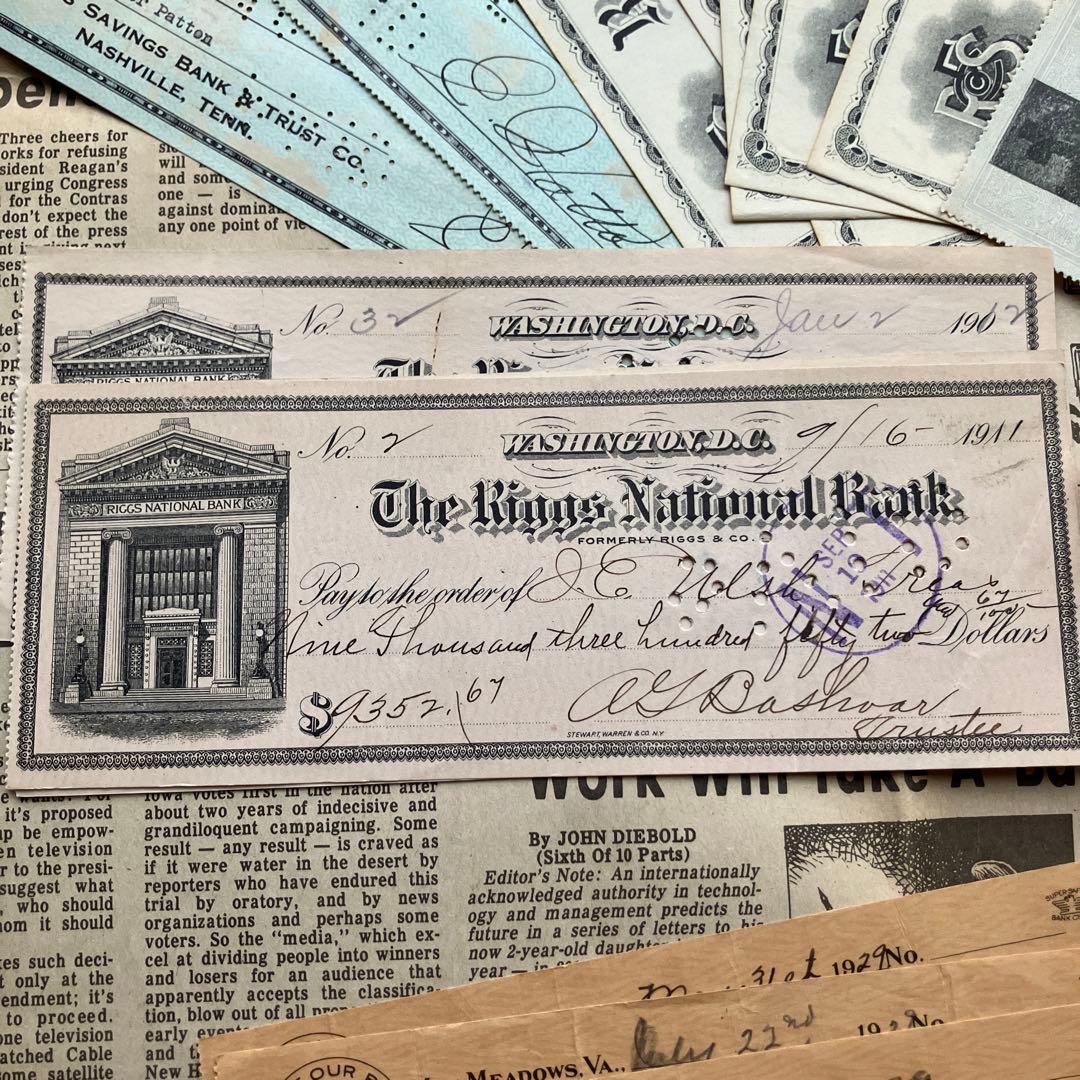 or Patton
SAVINGS BANK & TRUST CO.
NASHVILLE, TENN.
Three cheers for
orks for refusing
sident Reagan's
urging Congress
for the Contras
don't expect the
rest of the press
will
and som
one — is
against domina
any one point of vie
No. 32
WASHINGTON, D.C. Jan 2 1912
RIGGS NATIONAL BANK
No. 2
WASHINGTON, D.C. 9/16- 1911
RIGGS NATIONAL BANK
The Riggs National Bank
FORMERLY RIGGS & CO.
SEP
Pay to the order of J. E.
Nine Thousand three hundred fifty two 67/100 Dollars
$9352.67
Trustee
STEWART, WARREN & CO. N.Y.
Work Will Take A Ba
it's proposed
ap be empow-
en television
r to the presi-
suggest what
, who should
om it should
es such deci-
t only at the
endment; it's
to proceed.
one television
atched Cable
some satellite
Iowa votes first in the nation after
about two years of indecisive and
grandiloquent campaigning. Some
result — any result — is craved as
if it were water in the desert by
reporters who have endured this
trial by oratory, and by news
organizations and perhaps some
voters. So the "media," which ex-
cel at dividing people into winners
and losers for an audience that
apparently accepts the classifica-
tion, blow out of all prop
early even
and t
New H
By JOHN DIEBOLD
(Sixth Of 10 Parts)
Editor's Note: An internationally
acknowledged authority in technol-
ogy and management predicts the
future in a series of letters to his
now 2-year-old daughte
year — in
31st 1929 No.
MEADOWS, VA., July 22nd 1929 No
OUR